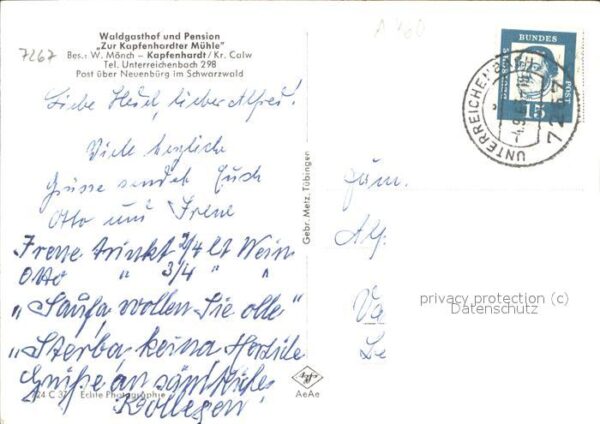 A 460
7267
Waldgasthof und Pension
„Zur Kapfenhardter Mühle"
Bes.: W. Mönch – Kapfenhardt / Kr. Calw
Tel. Unterreichenbach 298
Post über Neuenbürg im Schwarzwald
BUNDES
POST
15
UNTERREICHENBACH
7267
Liebe Hedel, lieber Alfred!
Viele herzliche
Grüsse sendet Euch
Otto und Irene
Irene trinkt 3/4 lt Wein
Otto " 3/4 " "
„Saufa wollen Sie olle"
„Sterba, keina Herzliche
Grüße an sämtliche
Kollegen!
Gebr. Metz, Tübingen
Fam.
Alf
Va
privacy protection (c)
Datenschutz
Echte Photographie
AeAe